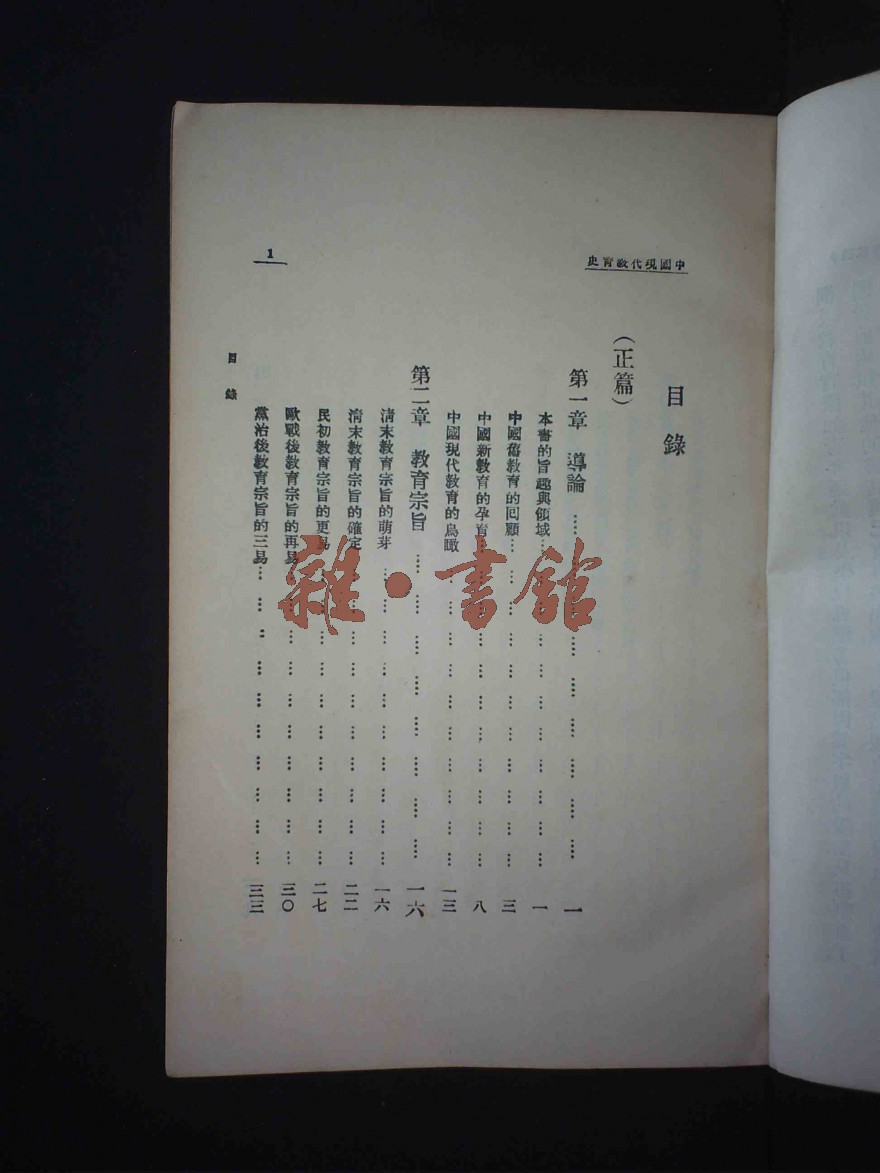 中國現代教育史
1
目錄
(正篇)
第一章 導論…………………………一
本書的旨趣與領域…………………………一
中國舊教育的回顧…………………………三
中國新教育的孕育…………………………八
中國現代教育的鳥瞰…………………………一三
第二章 教育宗旨…………………………一六
清末教育宗旨的萌芽…………………………一六
清末教育宗旨的確定…………………………二二
民初教育宗旨的更易…………………………二七
歐戰後教育宗旨的再易…………………………三〇
黨治後教育宗旨的三易…………………………三三
目錄
雜·書館